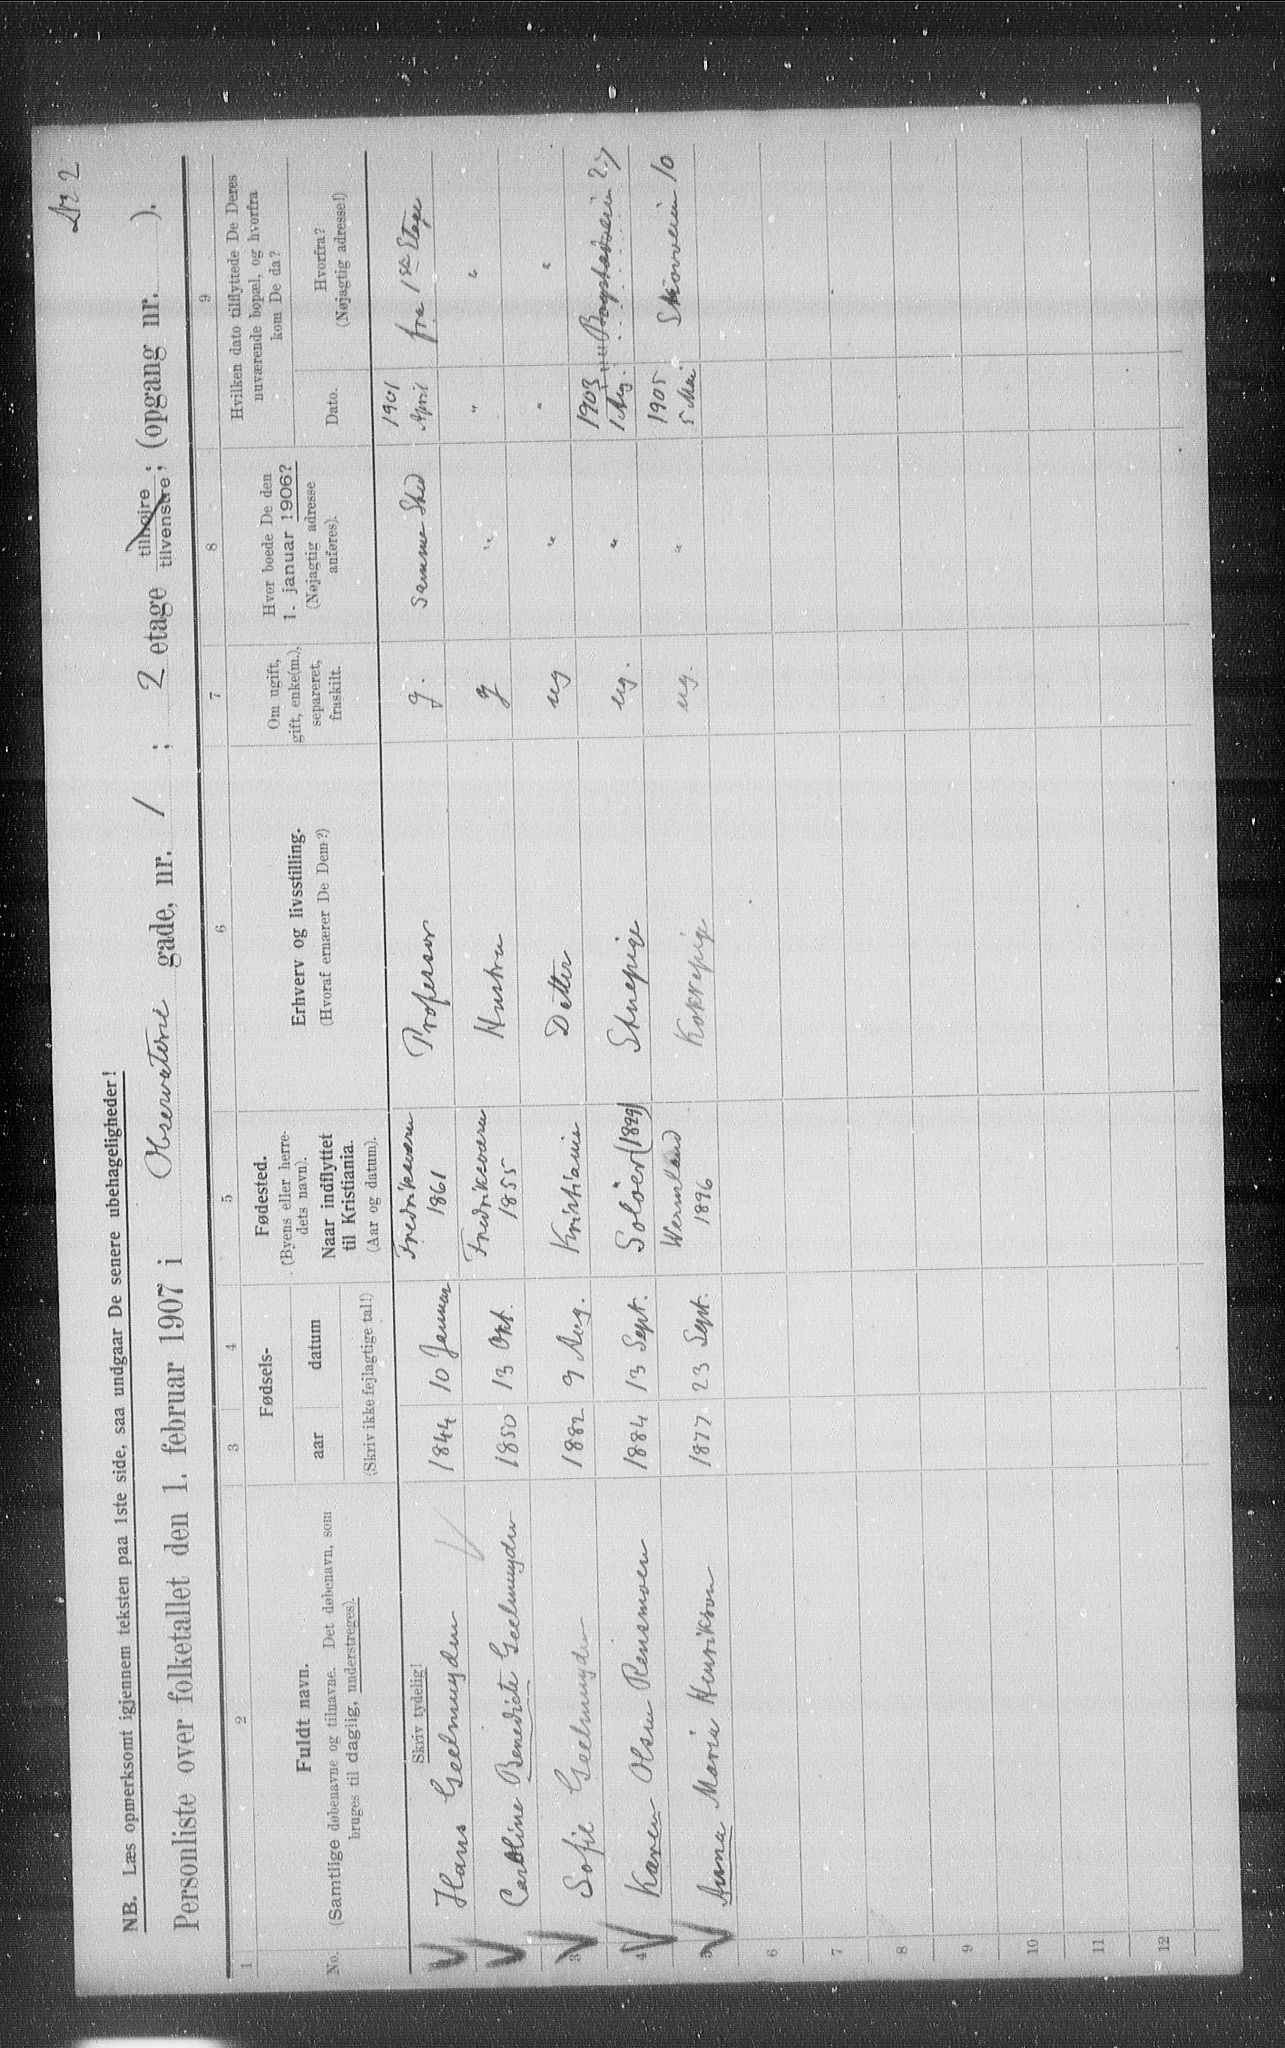 Nr 2
NB. Læs opmerksomt igjennem teksten paa 1ste side, saa undgaar De senere ubehageligheder!
Personliste over folketallet den 1. februar 1907 i Observatorie gade, nr. 1 ; 2 etage tilhøjre / tilvenstre; (opgang nr. ).
1 2 3 4 5 6 7 8 9
No.
Fuldt navn.
(Samtlige døbenavne og tilnavne. Det døbenavn, som
bruges til daglig, understreges).
Fødsels-
aar datum
(Skriv ikke fejlagtige tal!)
Fødested.
(Byens eller herre-
dets navn).
Naar indflyttet
til Kristiania.
(Aar og datum).
Erhverv og livsstilling.
(Hvoraf ernærer De Dem?)
Om ugift,
gift, enke(m.),
separeret,
fraskilt.
Hvor boede De den
1. januar 1906?
(Nøjagtig adresse
anføres).
Hvilken dato tilflyttede De Deres
nuværende bopæl, og hvorfra
kom De da?
Dato.
Hvorfra?
(Nøjagtig adresse!)
Skriv tydelig!
Hans Geelmuyden 1844 10 Januar Fredriksværn 1861 Professor g. Samme Sted 1901 April fra 1ste Etage
Caroline Benedicte Geelmuyden 1850 13 Okt. Fredriksværn 1855 Hustru g " " "
3 Sofie Geelmuyden 1882 9 Aug. Kristiania Datter ug " " "
4 Karen Olsen Rensmoen 1884 13 Sept. Soløer (1899) Stuepige ug. " 1903 1 Aug. Bogstadveien 27
5 Anna Maria Henrikson 1877 23 Sept. Wermland 1896 Kokkepige ug. " 1905 5 Mai Skovveien 10
6
7
8
9
10
11
12